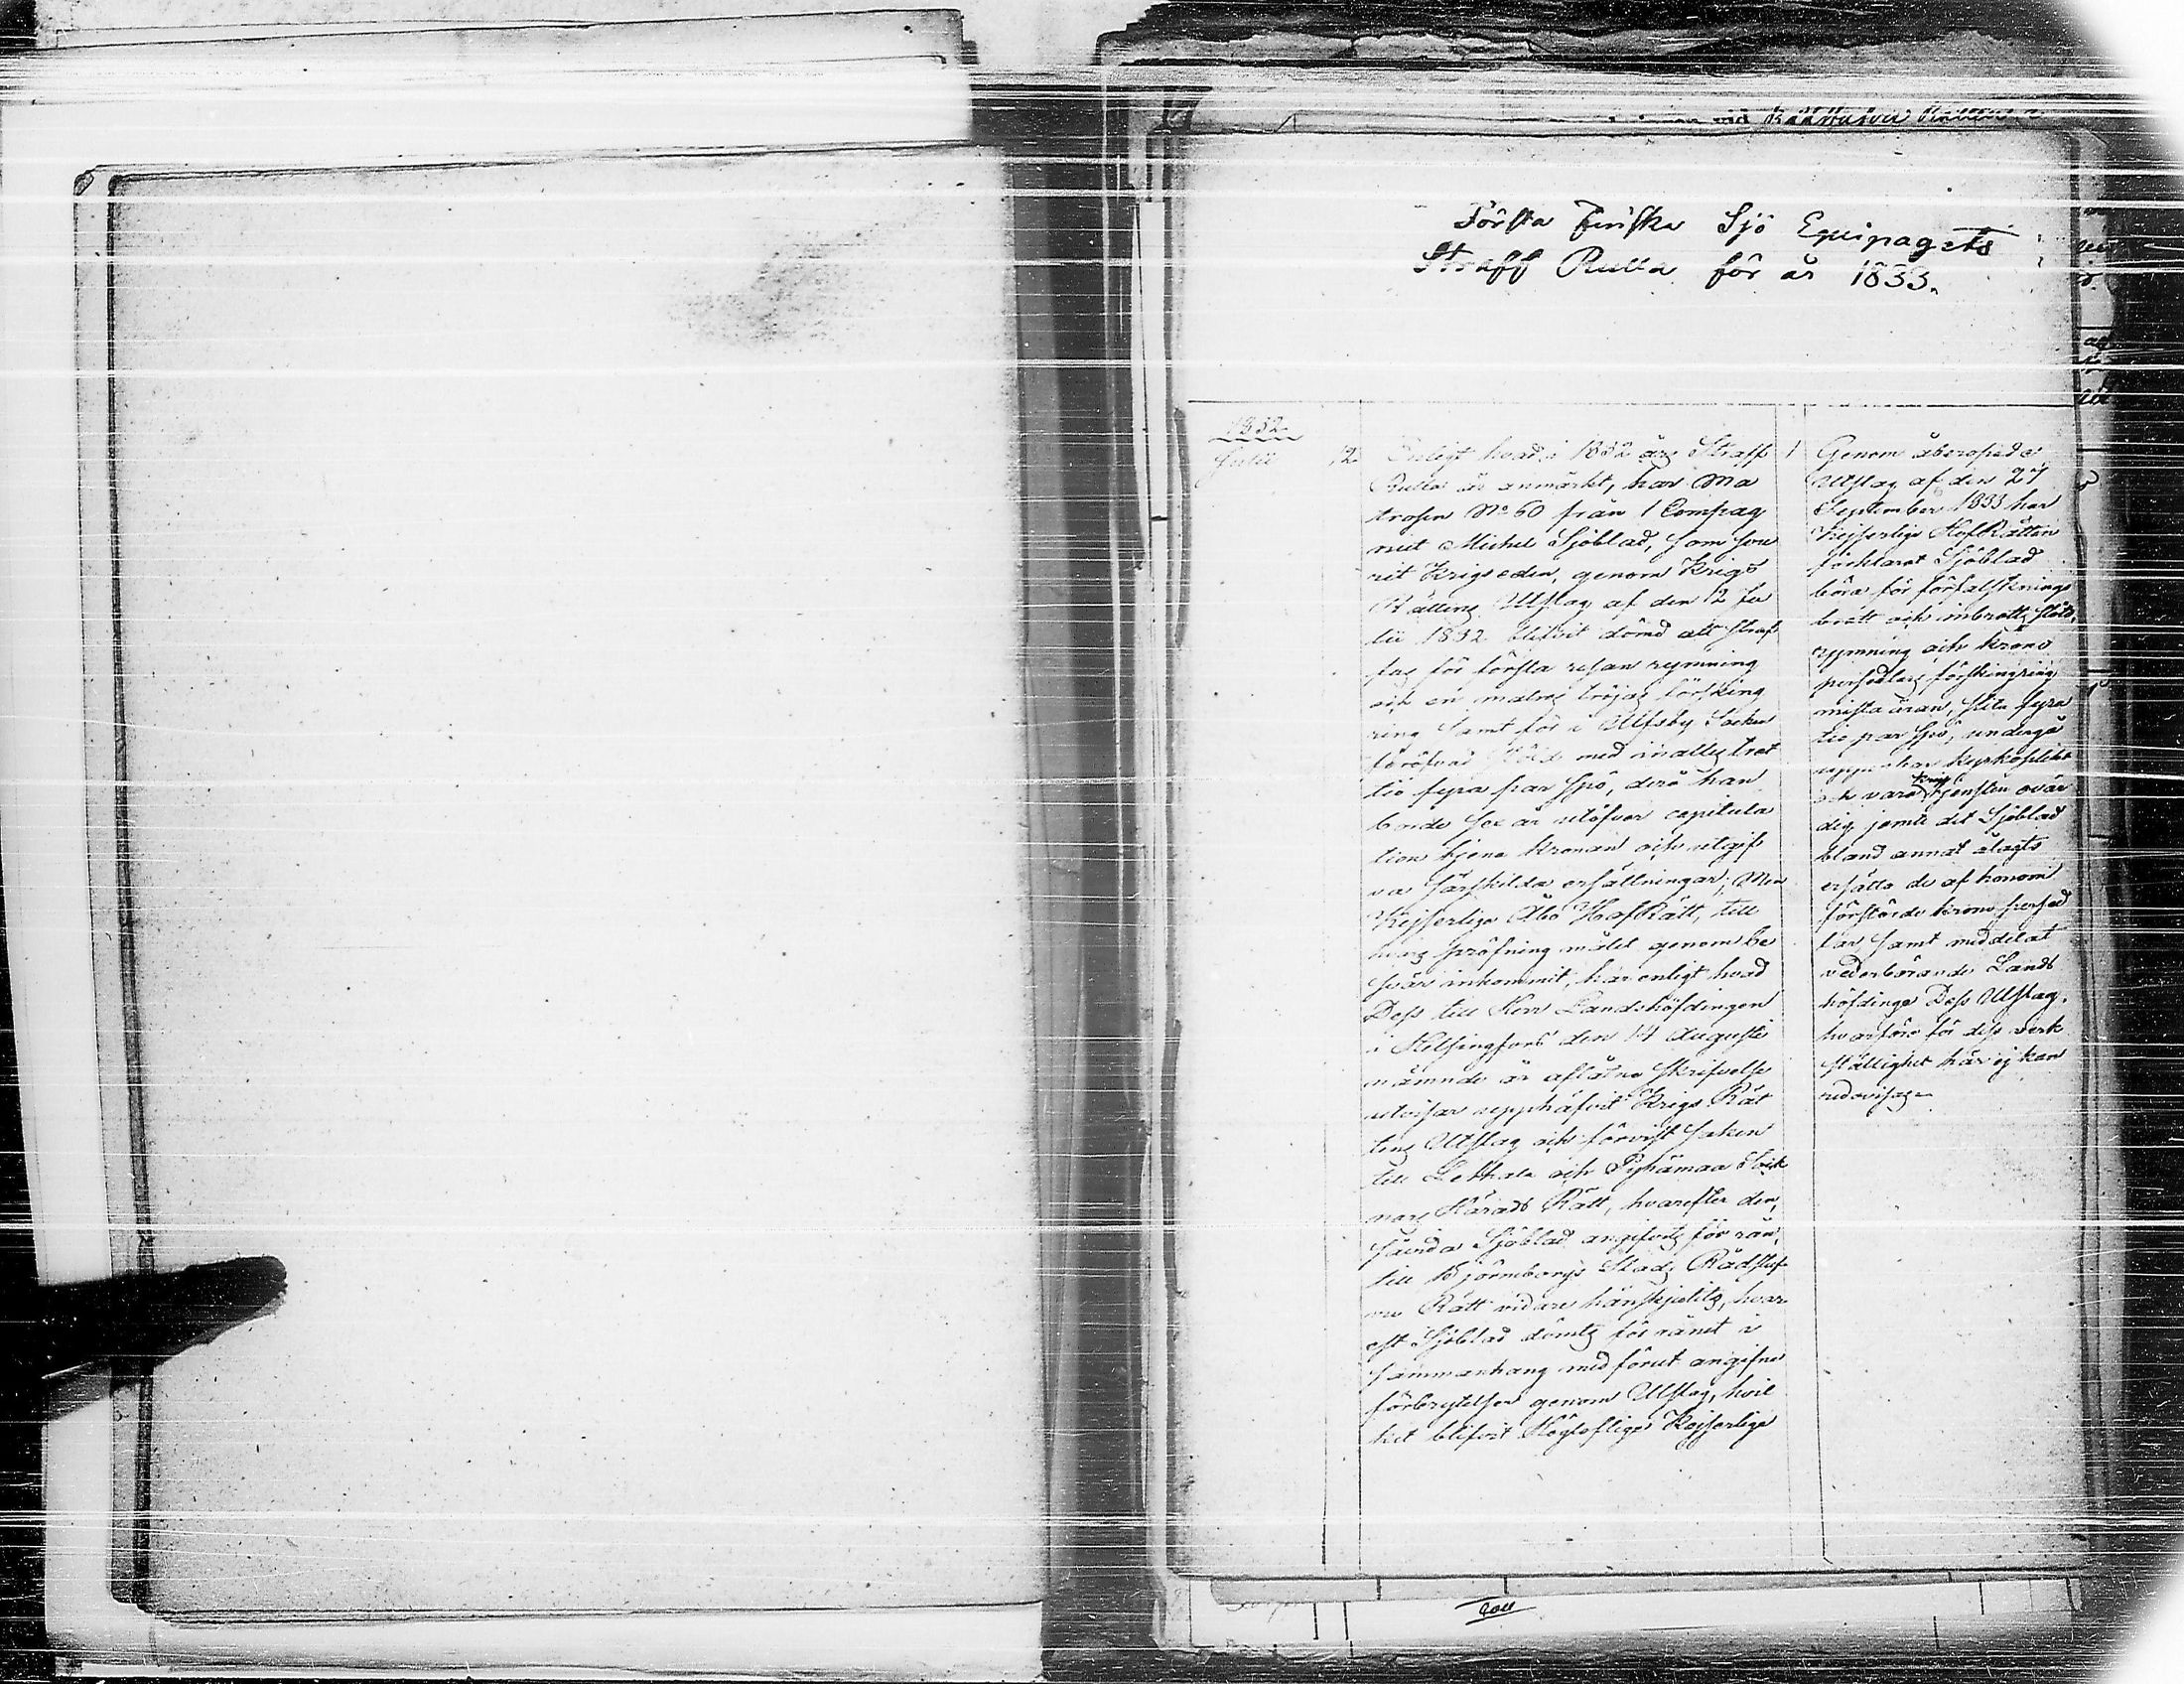 Rådstufvu Rätten
Första Finska Sjö Equipagets
Straff Rulla för år 1833.
1832.
Julii 12.
Enligt hvad i 1832 års Straff
Rulla är anmärkt, har Ma
trosen No 60 från 1 Compag
niet Michel Sjöblad, som svu
rit Krigseden, genom Krigs
Rättens Utslag af den 12 Ju
lii 1832 blifvit dömd att straf
fas för första resan rymning
och en matros tröjas försking
ring samt för i Ulfsby Socken
föröfvad stöld med inalles tret
tio fyra par spö, derå han
borde sex år utöfver capitula
tion tjena kronan och utgif
va särskilda ersättningar; Men
Kejserliga Åbo HofRätt, till
hvars pröfning målet genom be
svär inkommit, har enligt hvad
Dess till Herr Landshöfdingen
i Helsingfors den 14 Augusti
nämnde år aflåtne skrifvelse
utvisar upphäfvit Krigs Rät
tens Utslag och förvist saken
till Letthala och Pyhämaa
nars Härads Rätt, hvarefter den,
sedan Sjöblad angifvits för rån,
till Björneborgs Stads Rådstuf
vu Rätt vidare hänskjutits, hvar
est Sjöblad dömts för rånet i
sammanhang med förut angifne
förbrytelser genom Utslag, hvil
ket blifvit Höglofliga Kejserliga
1
Genom åberopade
Utslag af den 27
September 1833 har
Kejserliga HofRätten
förklarat Sjöblad
böra för förfalsknings
brott och inbrotts stöld,
rymning och krono
persedlars förskingring
mista äran, slita fyra
tio par spö, undergå
uppenbar kyrkoplikt
och vara krigstjensten ovär
dig, jemte det Sjöblad
bland annat ålagts
ersätta de af honom
förstörde krono persed
lar samt meddelat
vederbörande Lands
höfdinge Dess Utslag,
hvarföre för dess verk
ställighet här ej kan
redovisas.